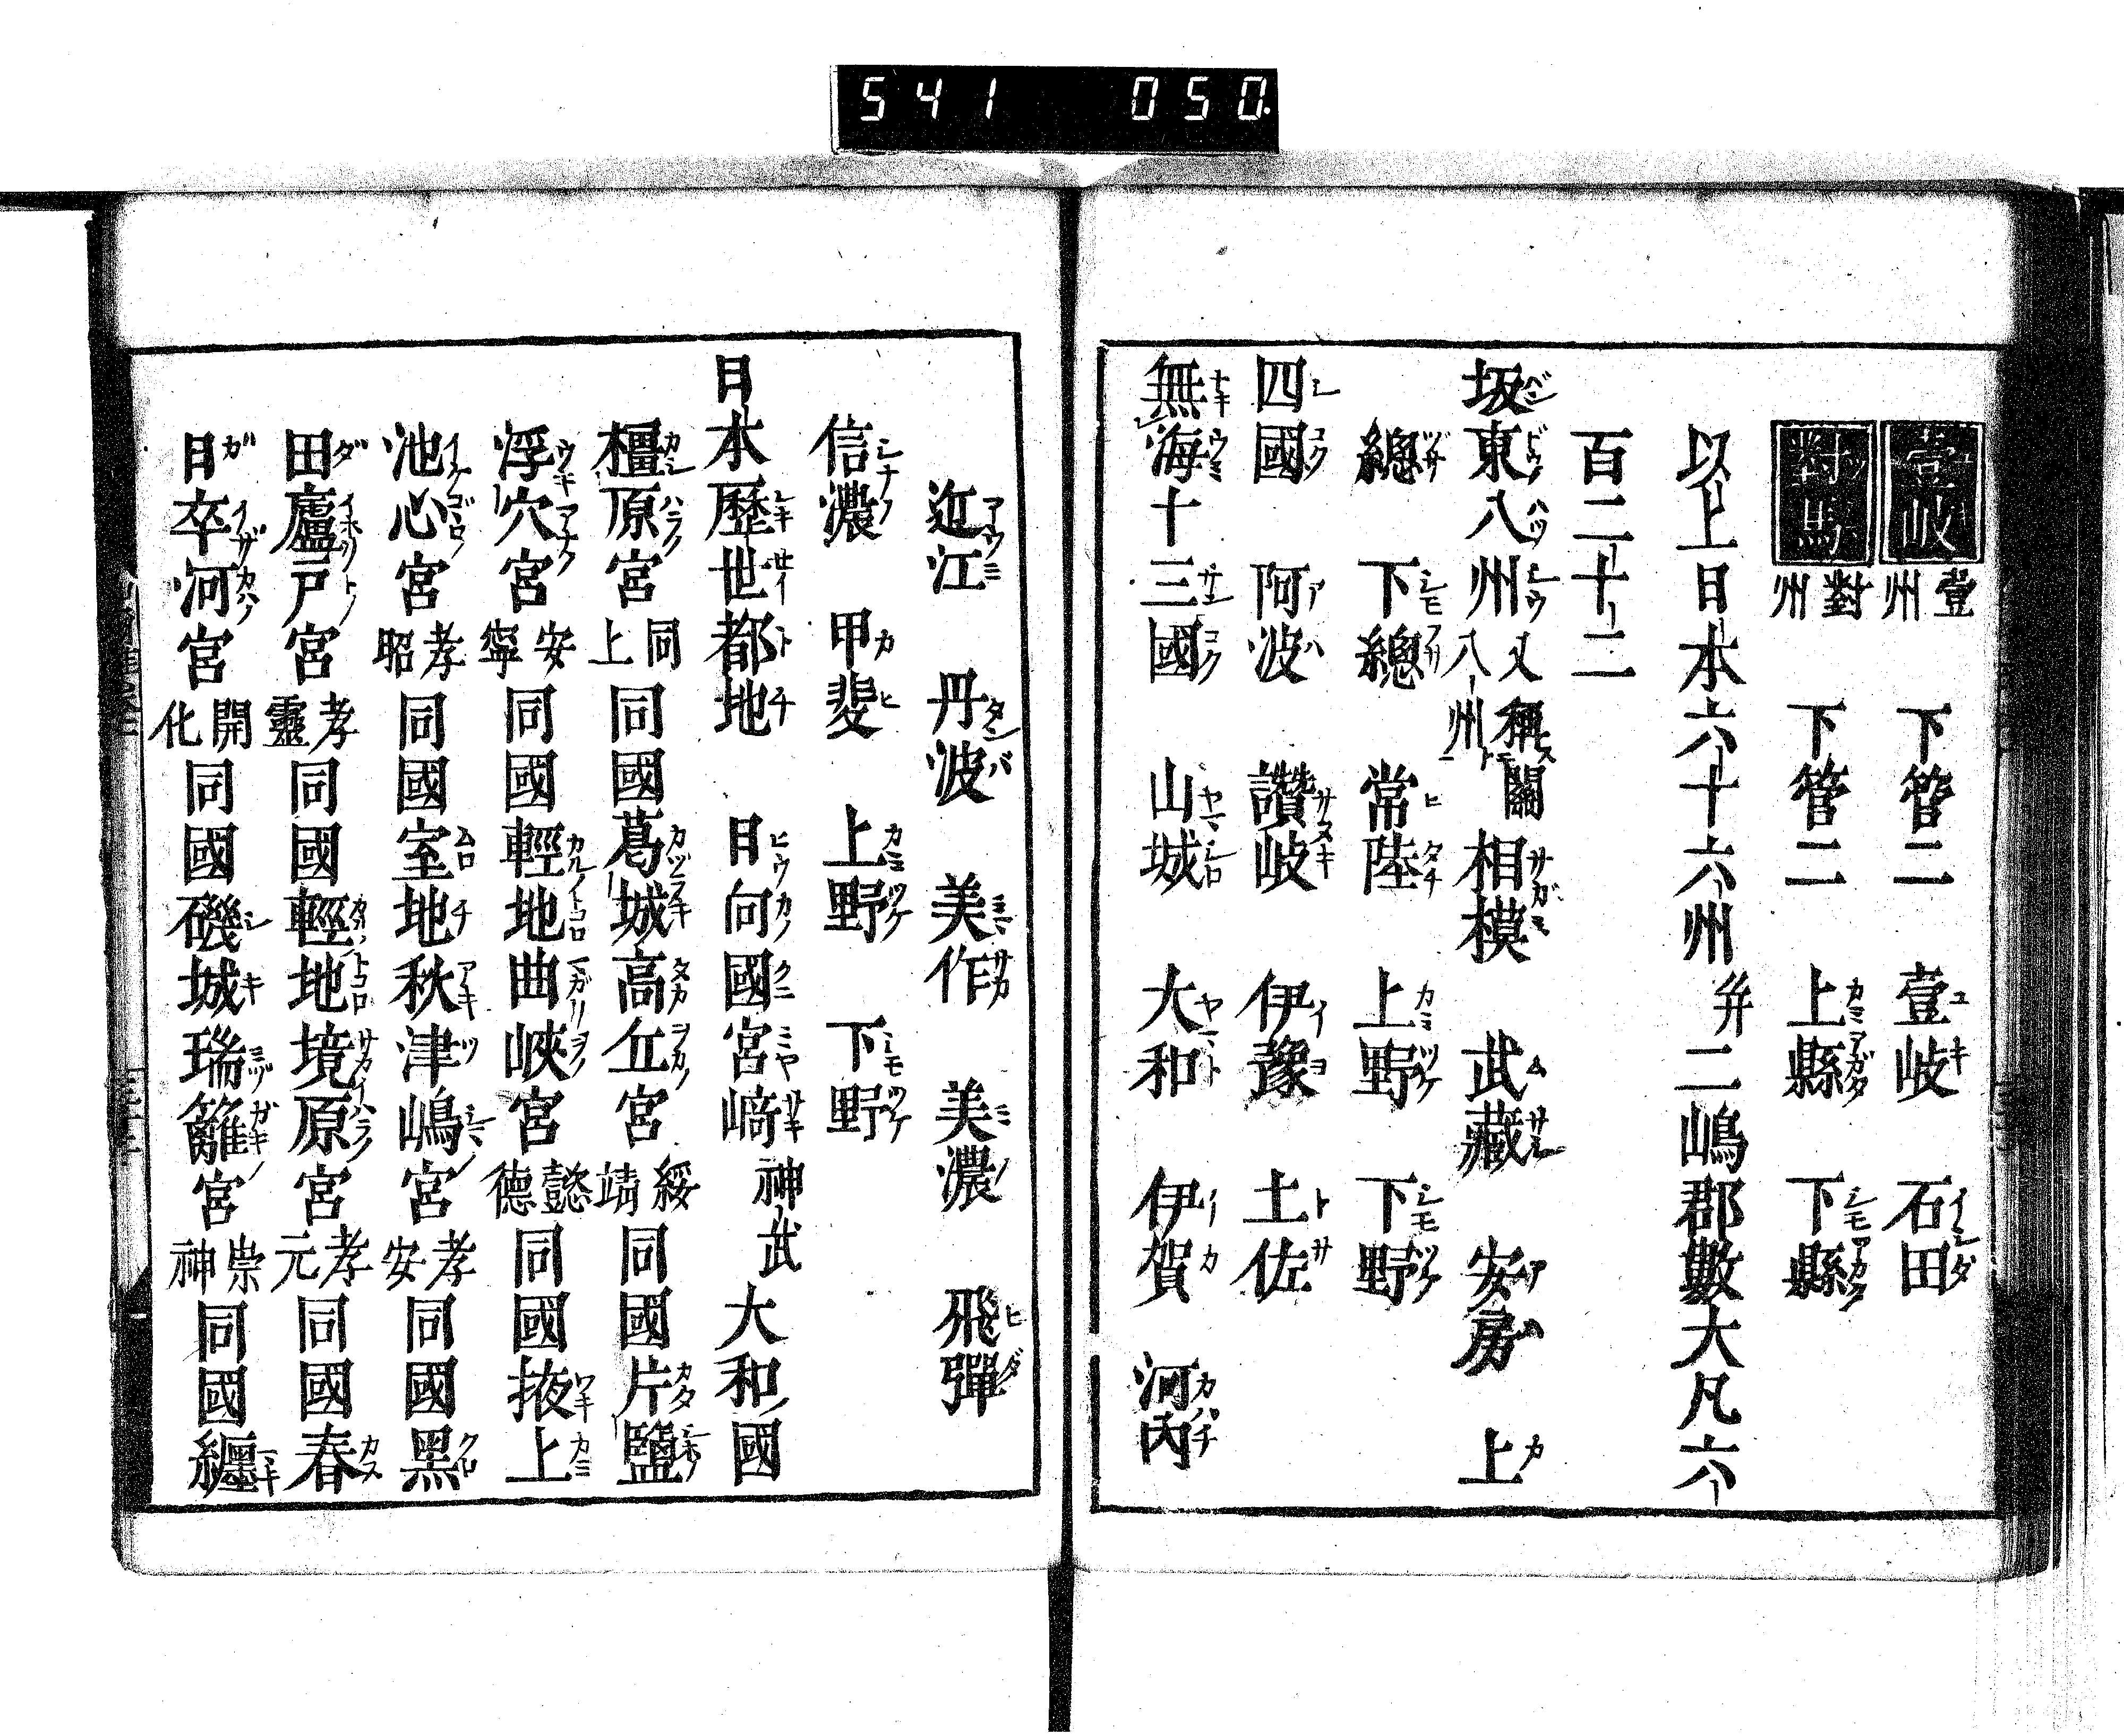 541 050
壹岐 壹州 下管二 壹岐 石田
對馬 對州 下管二 上縣 下縣
以上日本六十六州 并二嶋郡數大凡六
百二十二
坂東八州 又稱關八州 相模 武藏 安房 上
總 下總 常陸 上野 下野
四國 阿波 讚岐 伊豫 土佐
無海十三國 山城 大和 伊賀 河內
近江 丹波 美作 美濃 飛彈
信濃 甲斐 上野 下野
日本歷世都地 日向國宮崎 神武 大和國
橿原宮 同上 同國葛城高丘宮 綏靖 同國片鹽
浮穴宮 安寧 同國輕地曲峽宮 懿德 同國掖上
池心宮 孝昭 同國室地秋津嶋宮 孝安 同國黑
田廬戶宮 孝靈 同國輕地境原宮 孝元 同國春
日卒河宮 開化 同國磯城瑞籬宮 崇神 同國纏